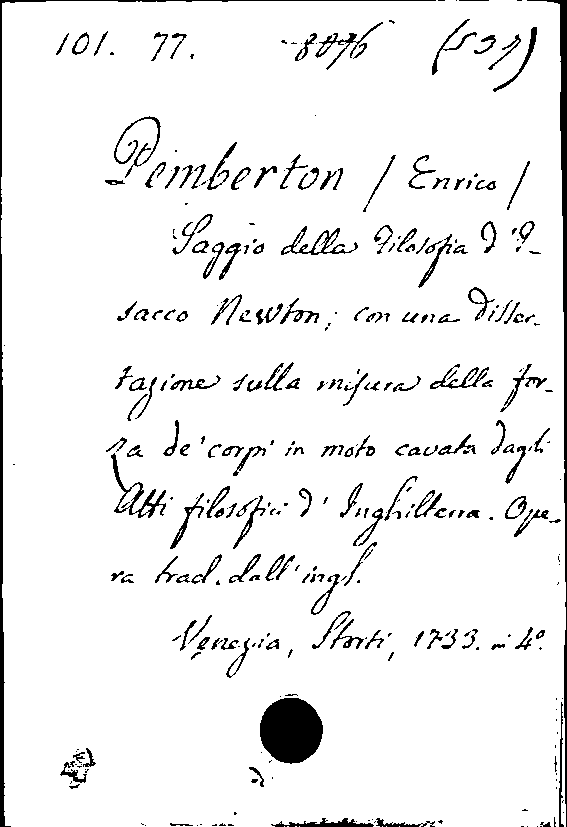 101. 77. 8096 (537)
Pemberton / Enrico /
Saggio della Filosofia d'I-
sacco Newton; con una disser-
tazione sulla misura della for-
za de' corpi in moto cavata dagli
Atti filosofici d'Inghilterra. Ope-
ra trad. dall'ingl.
Venezia, Storti, 1733. in 4º.